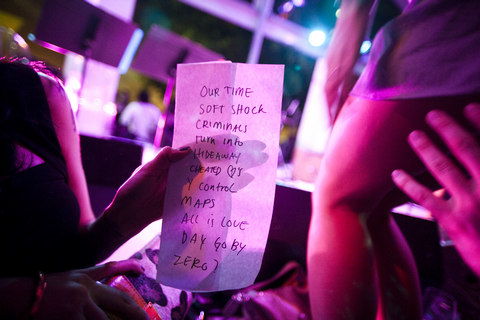 OUR TIME
SOFT SHOCK
CRIMINALS
TURN INTO
HIDEAWAY
CHEATED
Y CONTROL
MAPS
ALL is LOVE
DAY GO BY
ZERO